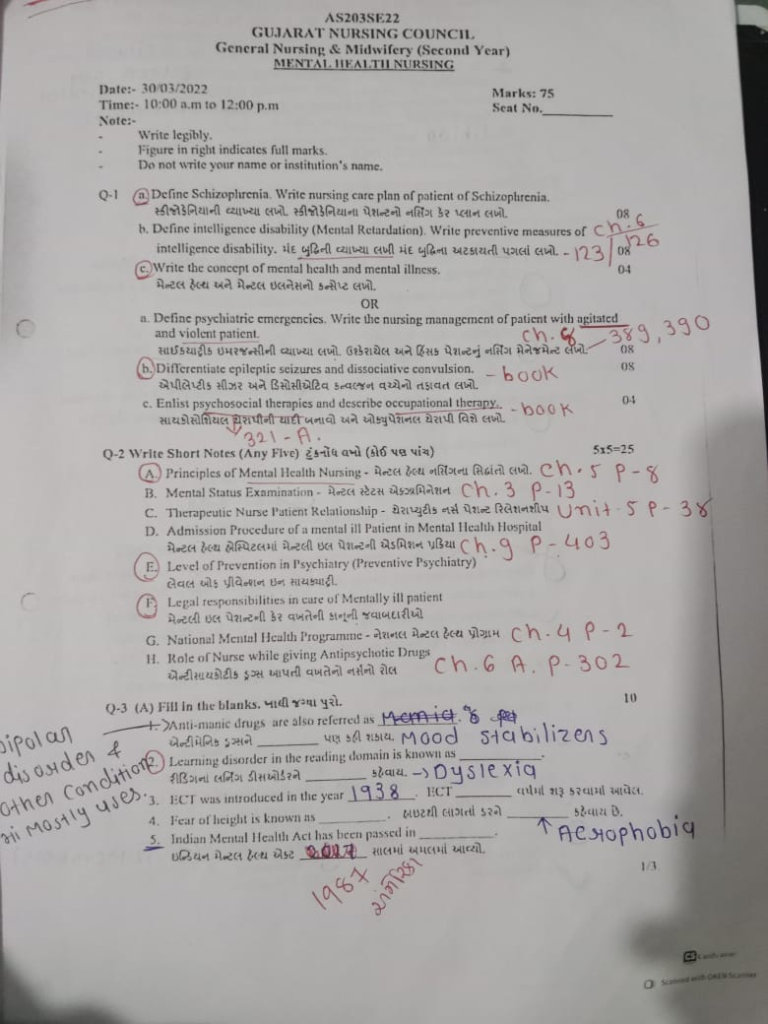 AS203SE22
GUJARAT NURSING COUNCIL
General Nursing & Midwifery (Second Year)
MENTAL HEALTH NURSING
Date:- 30/03/2022
Marks: 75
Time:- 10:00 a.m to 12:00 p.m
Seat No.
Note:-
- Write legibly.
- Figure in right indicates full marks.
- Do not write your name or institution's name.
Q-1 a. Define Schizophrenia. Write nursing care plan of patient of Schizophrenia.
સ્કીઝોફેનિયાની વ્યાખ્યા લખો. સ્કીઝોફેનિયાના પેશન્ટનો નર્સિંગ કેર પ્લાન લખો. 08
b. Define intelligence disability (Mental Retardation). Write preventive measures of ch.6
intelligence disability. મંદ બુદ્ધિની વ્યાખ્યા લખી મંદ બુદ્ધિના અટકાયતી પગલાં લખો. - 123/126 08
c. Write the concept of mental health and mental illness. 04
મેન્ટલ હેલ્થ અને મેન્ટલ ઇલનેસનો કન્સેપ્ટ લખો.
OR
a. Define psychiatric emergencies. Write the nursing management of patient with agitated
and violent patient. ch. 8 - 389, 390
સાઈકયાટ્રીક ઇમરજન્સીની વ્યાખ્યા લખો. ઉશ્કેરાયેલ અને હિંસક પેશન્ટનું નર્સિંગ મેનેજમેન્ટ લખો. 08
b. Differentiate epileptic seizures and dissociative convulsion. - book 08
એપીલેપ્ટીક સીઝર અને ડિસોસીએટિવ કન્વલ્જન વચ્ચેનો તફાવત લખો.
c. Enlist psychosocial therapies and describe occupational therapy. - book 04
સાયકોસોશિયલ થેરાપીની યાદી બનાવો અને ઓક્યુપેશનલ થેરાપી વિશે લખો.
321 - A.
Q-2 Write Short Notes (Any Five) ટૂંકનોંધ લખો (કોઈ પણ પાંચ) 5x5=25
A. Principles of Mental Health Nursing - મેન્ટલ હેલ્થ નર્સિંગના સિદ્ધાંતો લખો. Ch. 5 P - 8
B. Mental Status Examination - મેન્ટલ સ્ટેટસ એક્ઝામિનેશન Ch. 3 P - 13
C. Therapeutic Nurse Patient Relationship - થેરાપ્યુટીક નર્સ પેશન્ટ રિલેશનશીપ Unit - 5 P - 38
D. Admission Procedure of a mental ill Patient in Mental Health Hospital
મેન્ટલ હેલ્થ હોસ્પિટલમાં મેન્ટલી ઇલ પેશન્ટની એડમિશન પ્રક્રિયા Ch. 9 P - 403
E. Level of Prevention in Psychiatry (Preventive Psychiatry)
લેવલ ઓફ પ્રીવેન્શન ઇન સાયકયાટ્રી.
F. Legal responsibilities in care of Mentally ill patient
મેન્ટલી ઇલ પેશન્ટની કેર વખતેની કાનૂની જવાબદારીઓ
G. National Mental Health Programme - નેશનલ મેન્ટલ હેલ્થ પ્રોગ્રામ Ch. 4 P - 2
H. Role of Nurse while giving Antipsychotic Drugs Ch. 6 A. P - 302
એન્ટીસાયકોટીક ડ્રગ્સ આપતી વખતેનો નર્સનો રોલ
Q-3 (A) Fill in the blanks. ખાલી જગ્યા પુરો. 10
1. Anti-manic drugs are also referred as
એન્ટીમેનિક ડ્રગ્સને ________ પણ કહી શકાય. Mood stabilizers
bipolar disorder & other condition માં mostly uses.
2. Learning disorder in the reading domain is known as ________.
રીડીંગના લર્નિંગ ડીસઓર્ડરને ________ કહેવાય. → Dyslexia
3. ECT was introduced in the year 1938. ECT ________ વર્ષમાં શરૂ કરવામાં આવેલ.
4. Fear of height is known as ________. ઊંચાઈથી લાગતાં ડરને ________ કહેવાય છે.
↑ Aerophobia
5. Indian Mental Health Act has been passed in ________.
ઇન્ડિયન મેન્ટલ હેલ્થ એક્ટ 2017 સાલમાં અમલમાં આવ્યો.
1987
1/3
CS CamScanner
Scanned with OKEN Scanner